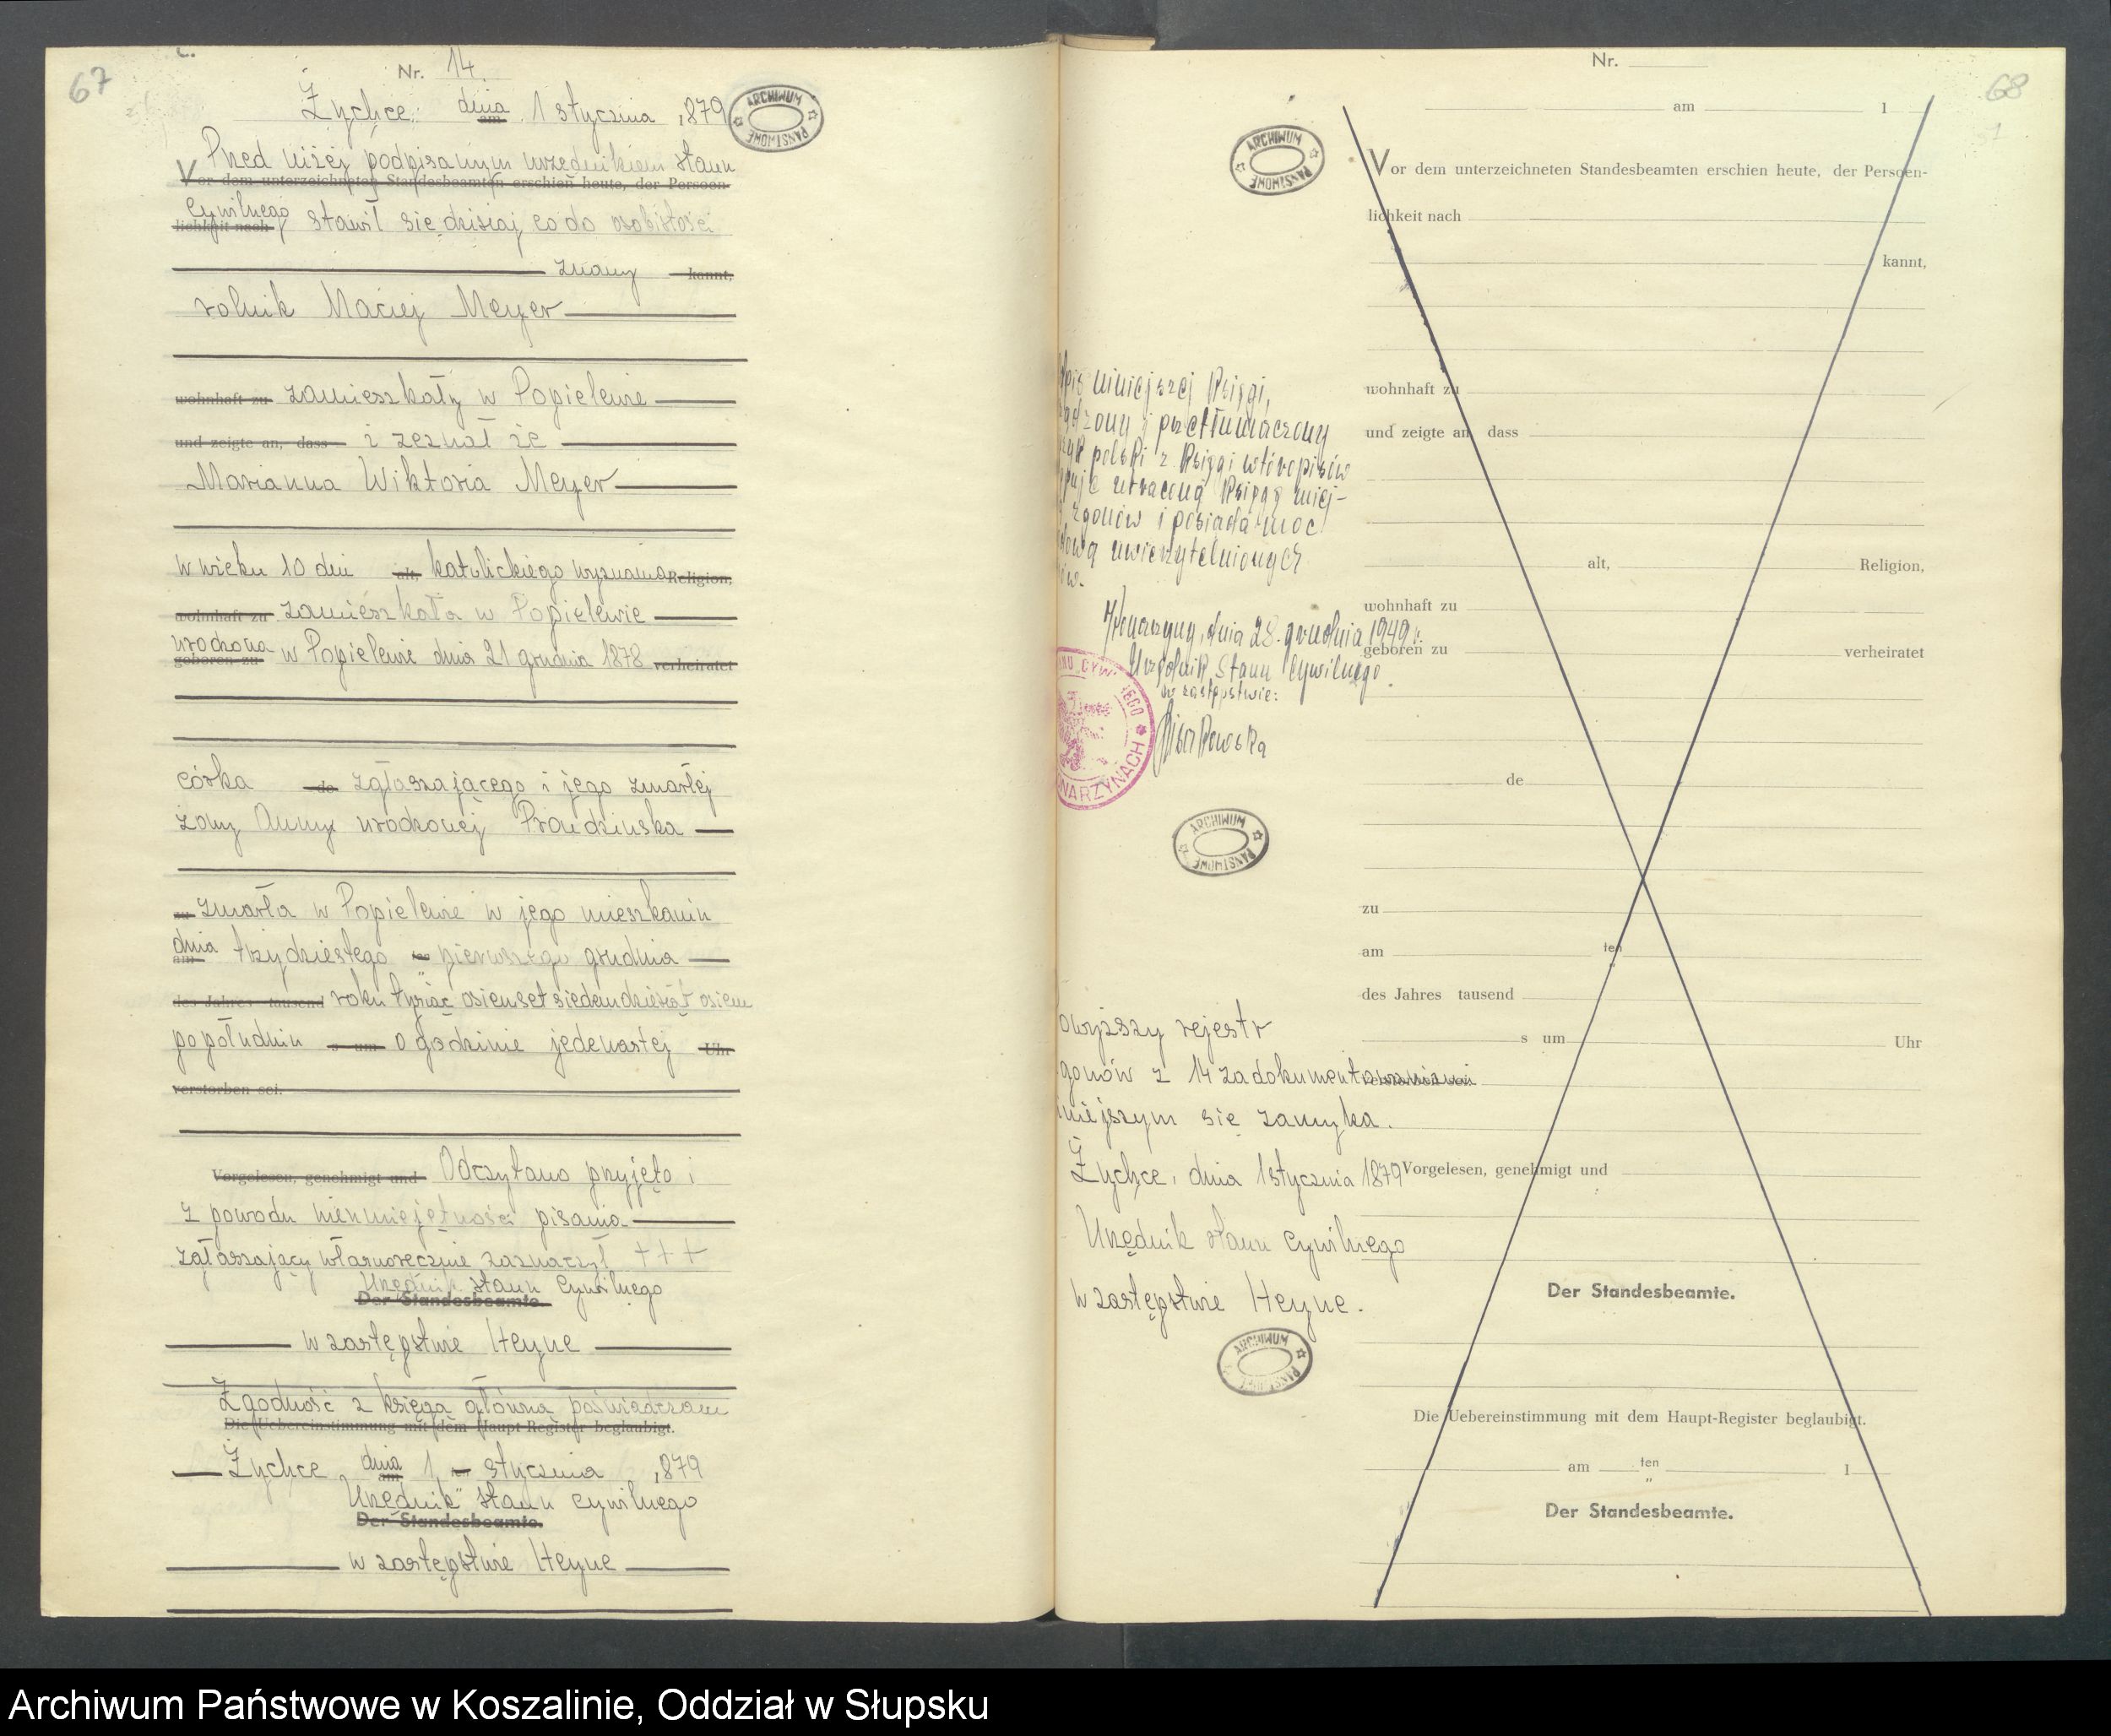 67
Nr. 14.
Żychce dnia am 1 stycznia 1879
ARCHIWUM PAŃSTWOWE
Przed niżej podpisanym urzędnikiem stanu
Vor dem unterzeichneten Standesbeamten erschien heute, der Persoen-
cywilnego stawił się dzisiaj co do osobistości
lichkeit nach
znany kannt,
rolnik Maciej Meyer
wohnhaft zu zamieszkały w Popielewie
und zeigte an, dass i zeznał że
Marianna Wiktoria Meyer
w wieku 10 dni alt, katolickiego wyznania Religion,
wohnhaft zu zamieszkała w Popielewie
urodzona w Popielewie dnia 21 grudnia 1878 verheiratet
geboren zu
córka de zgłaszającego i jego zmarłej
żony Anny urodzonej Prondzinska
zu zmarła w Popielewie w jego mieszkaniu
dnia am trzydziestego ten pierwszego grudnia
des Jahres tausend roku tysiąc osiemset siedemdziesiąt osiem
popołudniu s um o godzinie jedenastej Uhr
verstorben sei.
Vorgelesen, genehmigt und Odczytano przyjęto i
z powodu nieumiejętności pisania
zgłaszający własnoręcznie zaznaczył +++
Urzędnik stanu cywilnego
Der Standesbeamte.
w zastępstwie Heyne
Zgodność z księgą główną poświadczam
Die Uebereinstimmung mit dem Haupt-Register beglaubigt.
Żychce dnia am 1 ten stycznia 1879
Urzędnik stanu cywilnego
Der Standesbeamte.
w zastępstwie Heyne
68
Nr.
am 1
ARCHIWUM PAŃSTWOWE
Vor dem unterzeichneten Standesbeamten erschien heute, der Persoen-
lichkeit nach
kannt,
wohnhaft zu
und zeigte an, dass
alt, Religion,
wohnhaft zu
geboren zu verheiratet
de
zu
am ten
des Jahres tausend
s um Uhr
verstorben sei
Vorgelesen, genehmigt und
Der Standesbeamte.
Die Uebereinstimmung mit dem Haupt-Register beglaubigt.
am ten 1
Der Standesbeamte.
pis niniejszej Księgi,
ądzony i przetłumaczony
zyk polski z Księgi wtóropisów
puje utraconą Księgę miej-
zgonów i posiada moc
dową uwierzytelnionych
ów.
dnia 28. grudnia 1949 r.
Urzędnik Stanu Cywilnego
w zastępstwie:
ARCHIWUM PAŃSTWOWE
owyższy rejestr
gonów z 14 zadokumentowaniami
iniejszym się zamyka.
Żychce, dnia 1 stycznia 1879
Urzędnik stanu cywilnego
w zastępstwie Heyne.
ARCHIWUM PAŃSTWOWE
Archiwum Państwowe w Koszalinie, Oddział w Słupsku